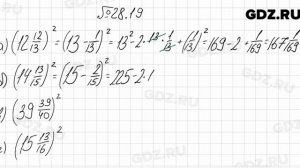 GDZ.RU
№28.19
) (12 12/13)² = (13 - 1/13)² = 13² - 2 · 13 · 1/13 + (1/13)² = 169 - 2 + 1/169 = 167 1/169
) (14 13/15)² = (15 - 2/15)² = 225 - 2 · 1
) (39 39/40)²
) (15 13/16)²